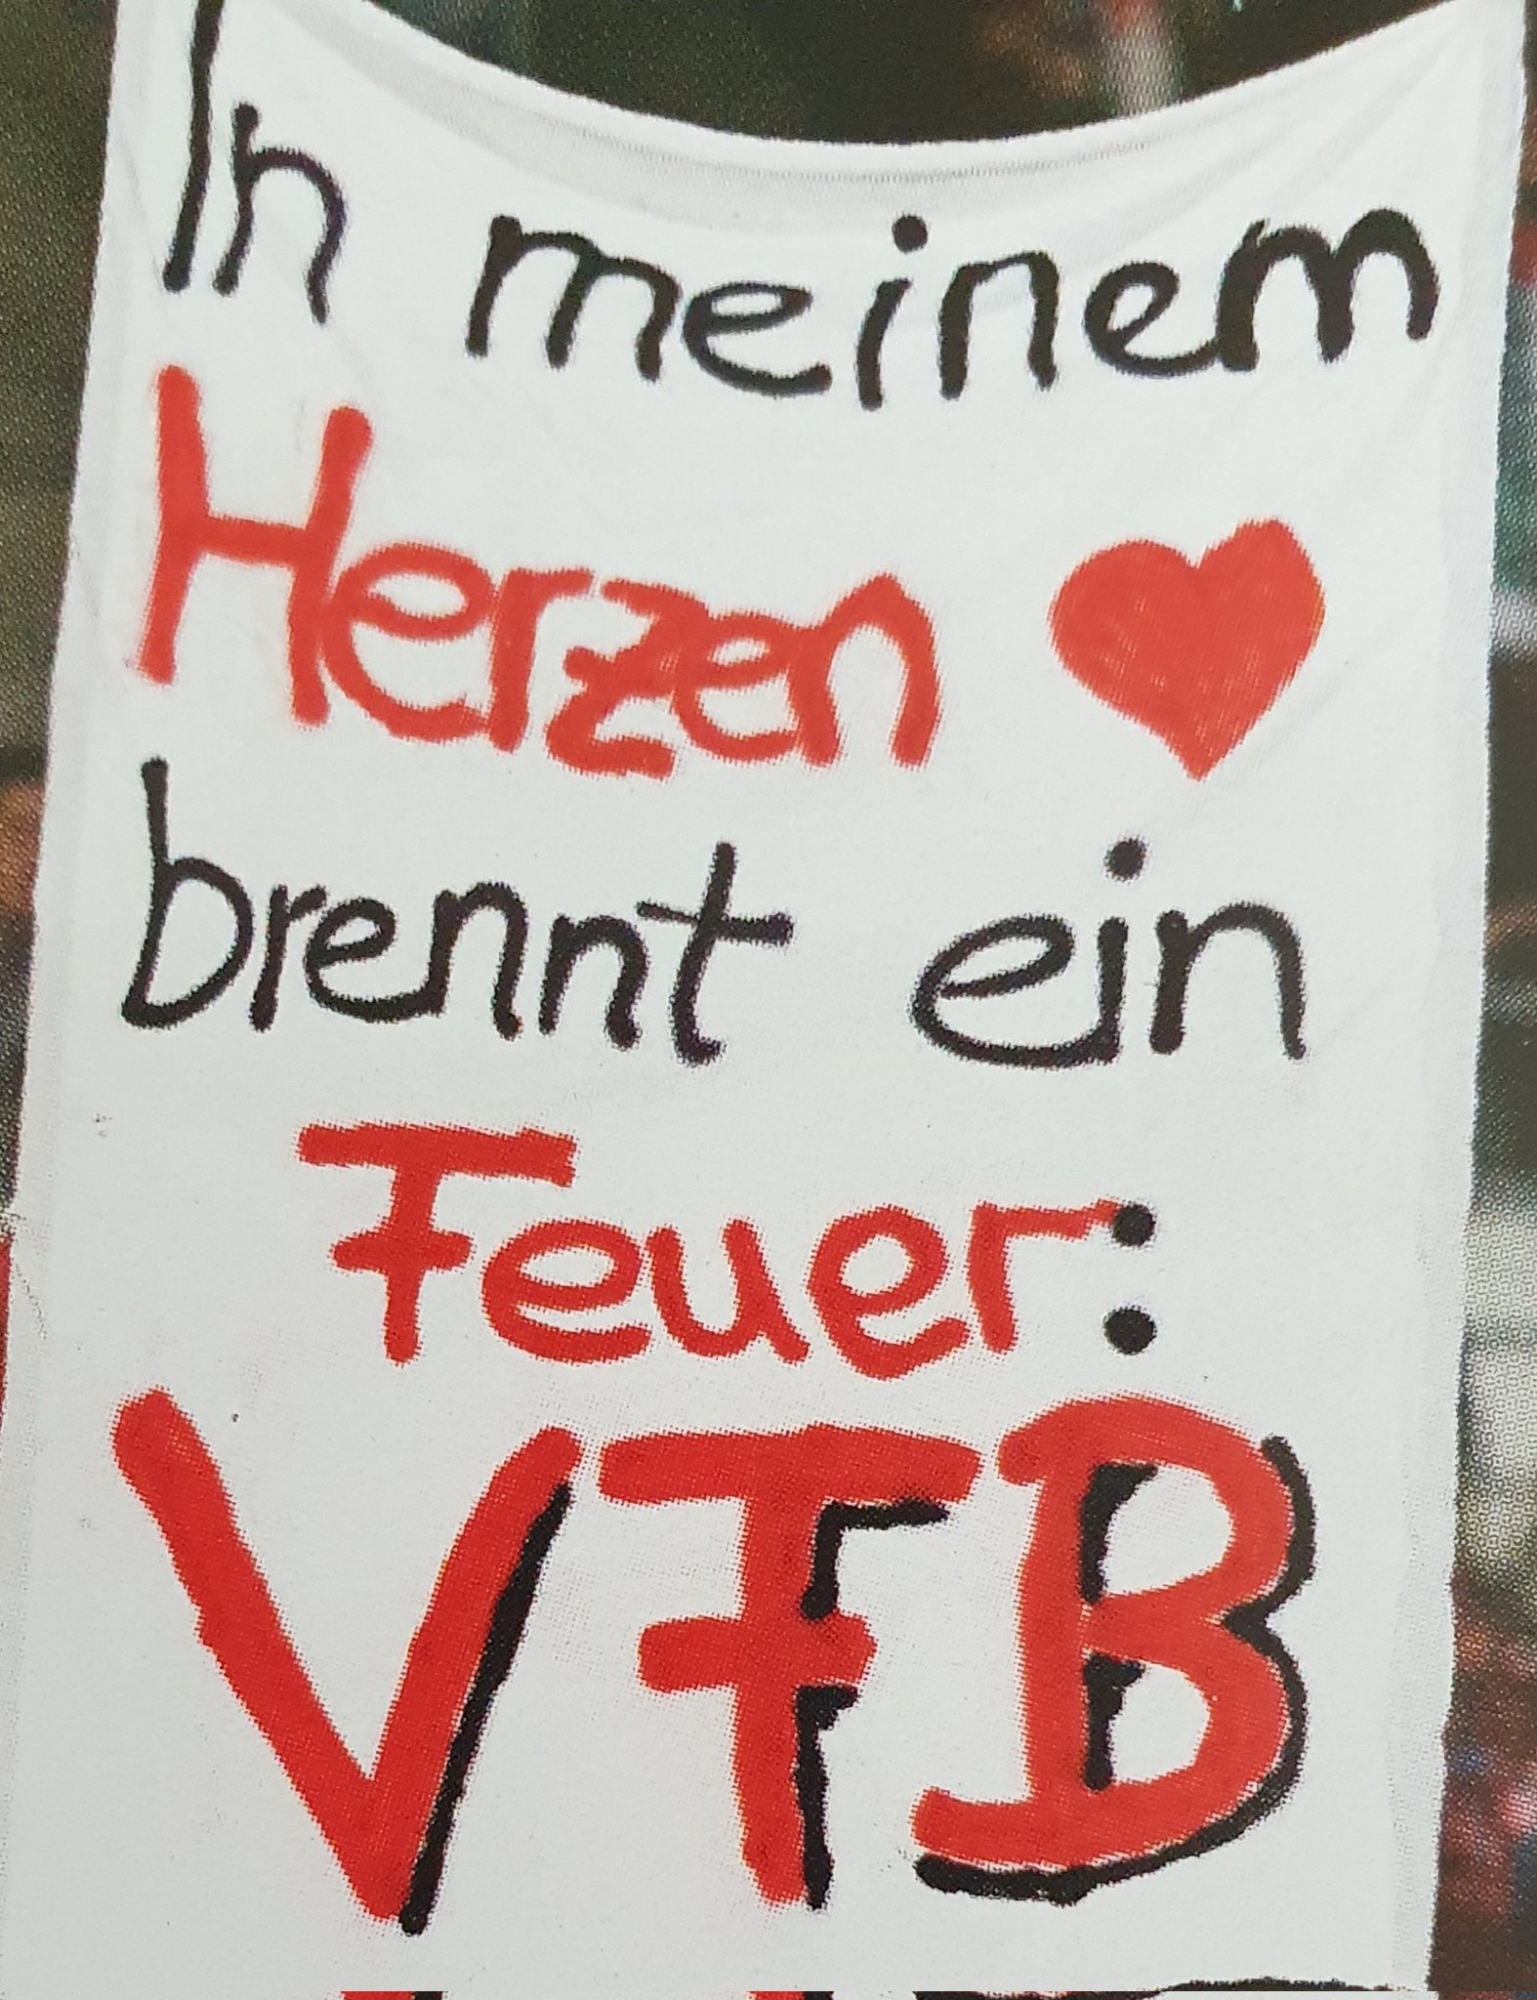 In meinem
Herzen ♥
brennt ein
Feuer:
VFB